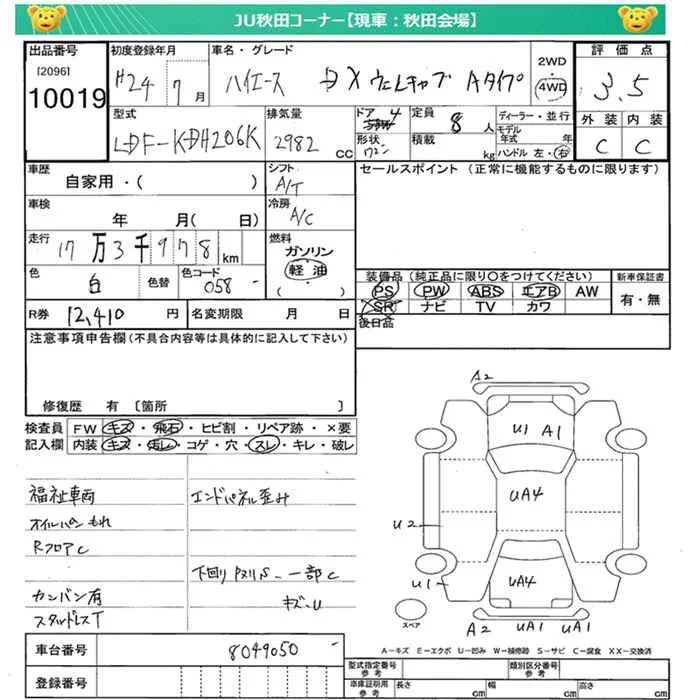 JU秋田コーナー【現車:秋田会場】
出品番号 初度登録年月 車名・グレード 2WD 評価点
[2096]
10019 H24 7月 ハイエース DX ウェルキャブ Aタイプ 4WD 3.5
型式 排気量 ドア 4 定員 8人 ディーラー・並行 外装 内装
LDF-KDH206K 2982 cc 形状 ワゴン 積載 kg モデル年式 年 ハンドル 左・右 C C
車歴 自家用・( ) シフト A/T セールスポイント(正常に機能するものに限ります)
車検 年 月( 日) 冷房 A/C
走行 17万3千978km 燃料 ガソリン 軽油 ( )
色 白 色替 色コード 058 -
装備品(純正品に限り〇をつけてください) 新車保証書
PS PW ABS エアB AW 有・無
SR ナビ TV カワ
R券 12,410 円 名変期限 月 日 後日品
注意事項申告欄(不具合内容等は具体的に記入して下さい)
修復歴 有 〔箇所 〕
検査員記入欄 FW キズ・飛石・ヒビ割・リペア跡・×要
内装 キズ・汚レ・コゲ・穴・スレ・キレ・破レ
福祉車両 エンドパネル歪み
オイルパンもれ
RフロアC
下回りPスリS、一部C
カンバン有 キズ・U
スタッドレスT
A2
U1 A1
UA4
U2
UA4
U1
A2 UA1 UA1
スペア
A-キズ E-エクボ U-凹み W-補修跡 S-サビ C-腐食 XX-交換済
車台番号 8049050 -
登録番号
型式指定番号 参考 類別区分番号 参考
車庫証明用 参考 長さ cm 幅 cm 高さ cm